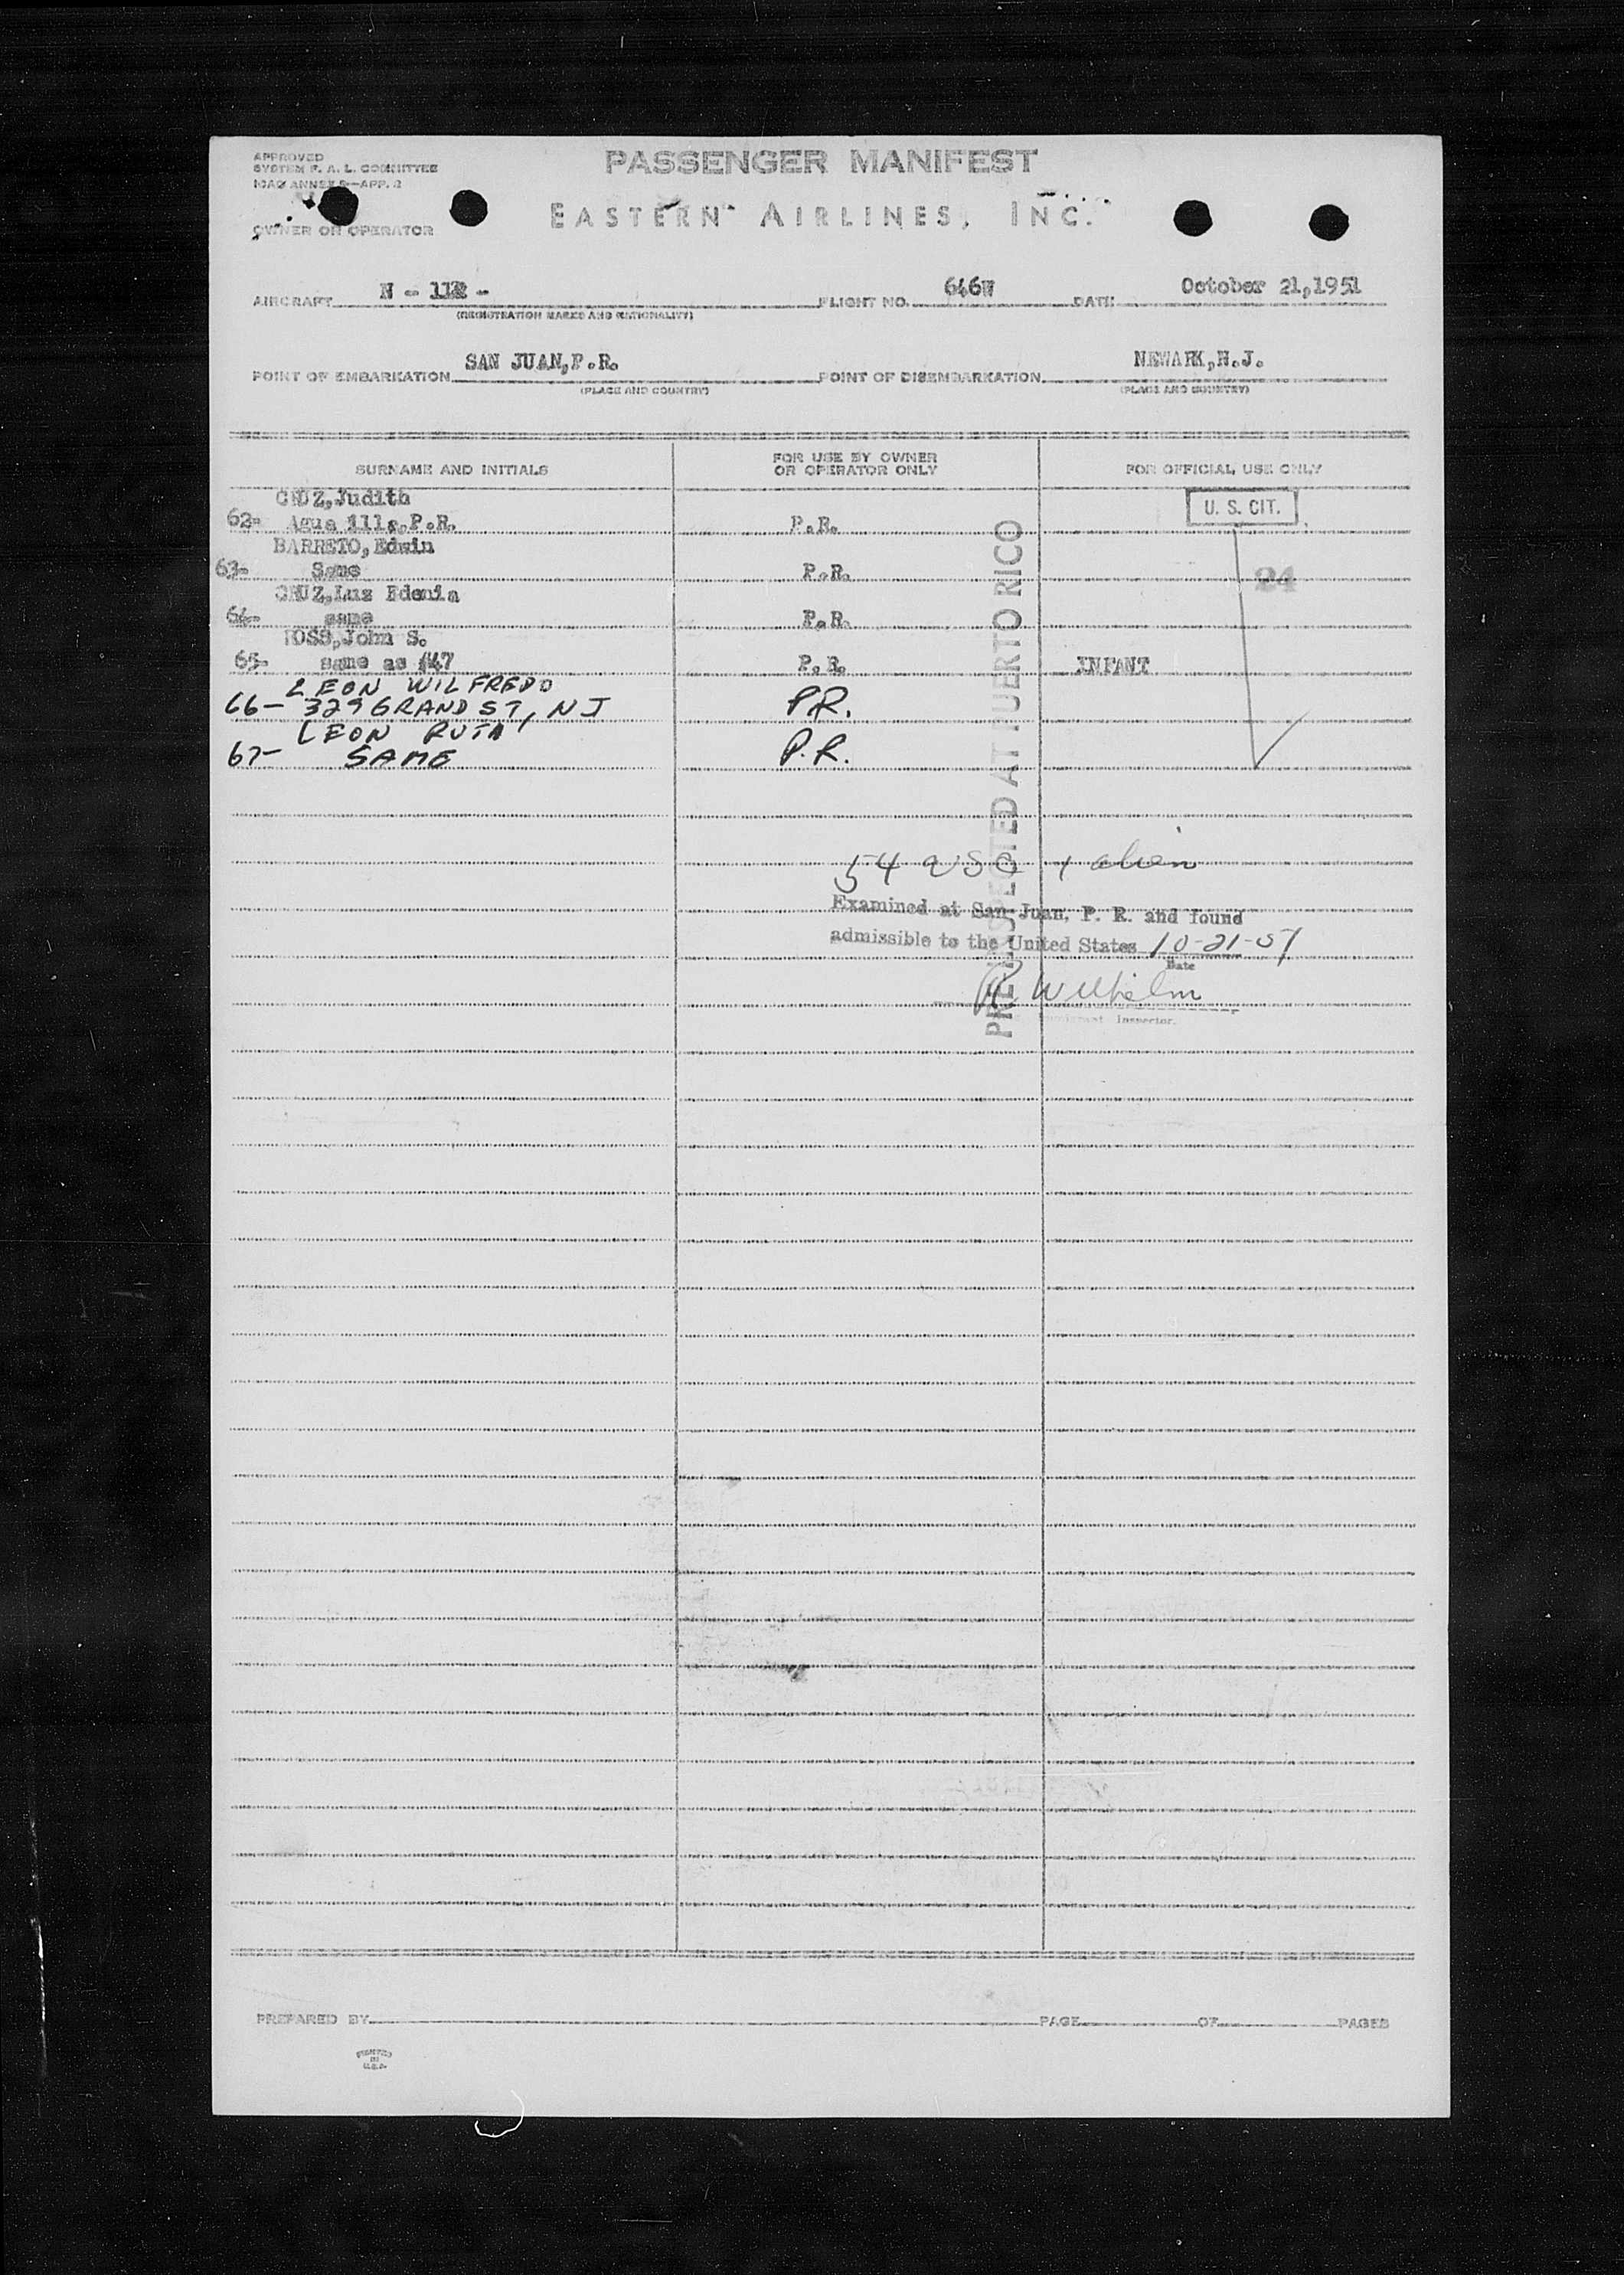 APPROVED
SYSTEM F. A. L. COMMITTEE
ICAO ANNEX 9—APP. 2
PASSENGER MANIFEST
EASTERN AIRLINES, INC.
OWNER OR OPERATOR
AIRCRAFT N - 112 - FLIGHT NO. 646W DATE October 21,1951
(REGISTRATION MARKS AND NATIONALITY)
POINT OF EMBARKATION SAN JUAN,P.R. POINT OF DISEMBARKATION NEWARK,N.J.
(PLACE AND COUNTRY) (PLACE AND COUNTRY)
SURNAME AND INITIALS FOR USE BY OWNER OR OPERATOR ONLY FOR OFFICIAL USE ONLY
CRUZ,Judith
62- Agua illa,P.R. P.R. U. S. CIT.
BARRETO,Edwin
63- Same P.R. 24
CRUZ,Luz Edenia
64- same P.R.
ROSS,John S.
65- same as #47 P.R. INFANT
LEON WILFREDO
66- 329 GRAND ST, NJ P.R.
LEON RUTH
67- SAME P.R.
PREINSPECTED AT PUERTO RICO
54 USC 1 alien
Examined at San Juan, P. R. and found
admissible to the United States 10-21-51
Date
R Wilhelm
Immigrant Inspector.
PREPARED BY PAGE OF PAGES
PRINTED
IN
U.S.A.